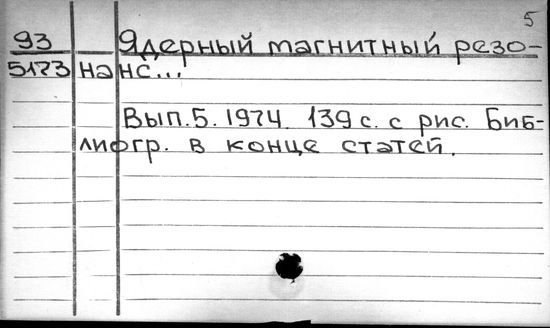 5
93 Ядерный магнитный резо-
5173 нанс...
Вып.5. 1974. 139 с. с рис. Биб-
лиогр. в конце статей.